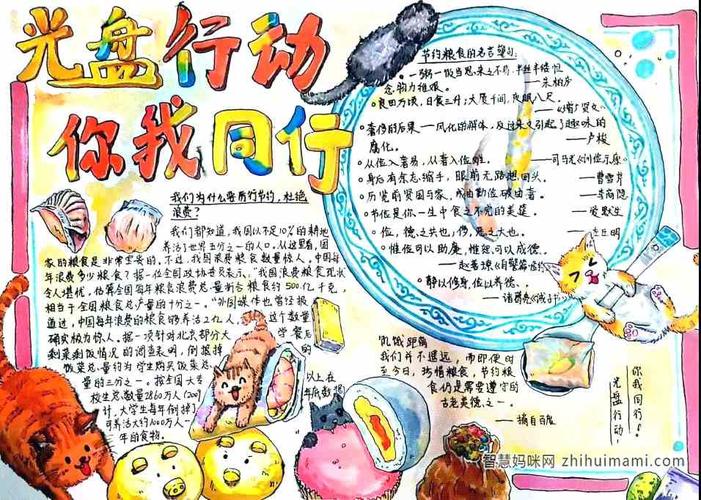 光盘行动
你我同行
节约粮食的名言警句
一粥一饭当思来之不易，半丝半缕恒
念物力维艰。——朱柏庐
良田万顷，日食三升；大厦千间，夜眠八尺。
奢侈的后果——风化的解体，反过来又引起了趣味的
腐化。——卢梭
从俭入奢易，从奢入俭难。
——司马光《训俭示康》
身后有余忘缩手，眼前无路想回头。
——曹雪芹
历览前贤国与家，成由勤俭破由奢。
——李商隐
节俭是你一生中食之不完的美筵。
——爱默生
俭，德之共也，侈，恶之大也。
——左丘明
惟俭可以助廉，惟恕可以成德。
静以修身，俭以养德。
——诸葛亮《诫子书》
我们为什么要厉行节约，杜绝
浪费？
我们都知道，我国以不足10%的耕地
养活了世界五分之一的人口。从这里看，国
家的粮食是非常宝贵的。不过，我国浪费粮食数量惊人，中国每
年浪费多少粮食？据一位全国政协委员表示，“我国浪费粮食现状
令人堪忧，估算全国每年粮食浪费总量折合粮食约500亿千克，
相当于全国粮食总产量的十分之一。”外国媒体也曾经报
道过，中国每年浪费的粮食够养活2亿人，这个数量
确实极为惊人。据一项针对北京部分大学餐后
剩菜剩饭情况的调查表明，倒掉的
饭菜总量约为学生购买饭菜总
量的三分之一。按全国大专
校生总数量2860万人(2009
计，大学生每年倒掉
可养活大约1000万人一
年的食物。
以上在
年底数据
饥饿距离
我们并不遥远，而即便时
至今日，珍惜粮食，节约粮
食仍是需要遵守的
古老美德之一。
——摘自百度
你我同行！
光盘行动！
智慧妈咪网 zhihuimami.com